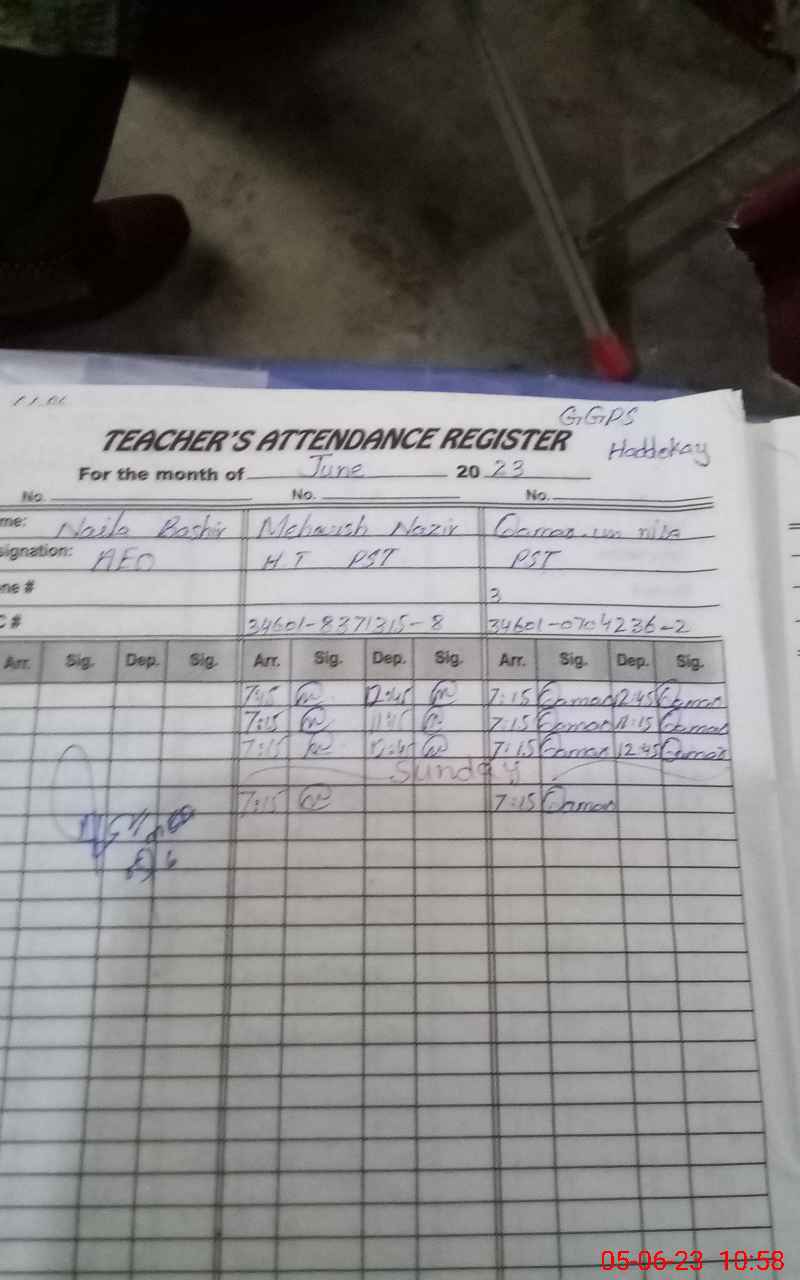 GGPS
TEACHER'S ATTENDANCE REGISTER Haddekay
For the month of June 20 23
No. No. No.
me: Naila Bashir Mehwish Nazir Qamar-un nisa
signation: AEO H.T PST PST
ne # 3
C # 34601-8371315-8 34601-0704236-2
Arr. Sig. Dep. Sig. Arr. Sig. Dep. Sig. Arr. Sig. Dep. Sig.
7:15 12:45 7:15 Qamar 12:45 Qamar
7:15 11:15 7:15 Qamar 11:15 Qamar
7:15 12:45 7:15 Qamar 12:45 Qamar
Sunday
7:15 7:15 Qamar
05-06-23 10:58